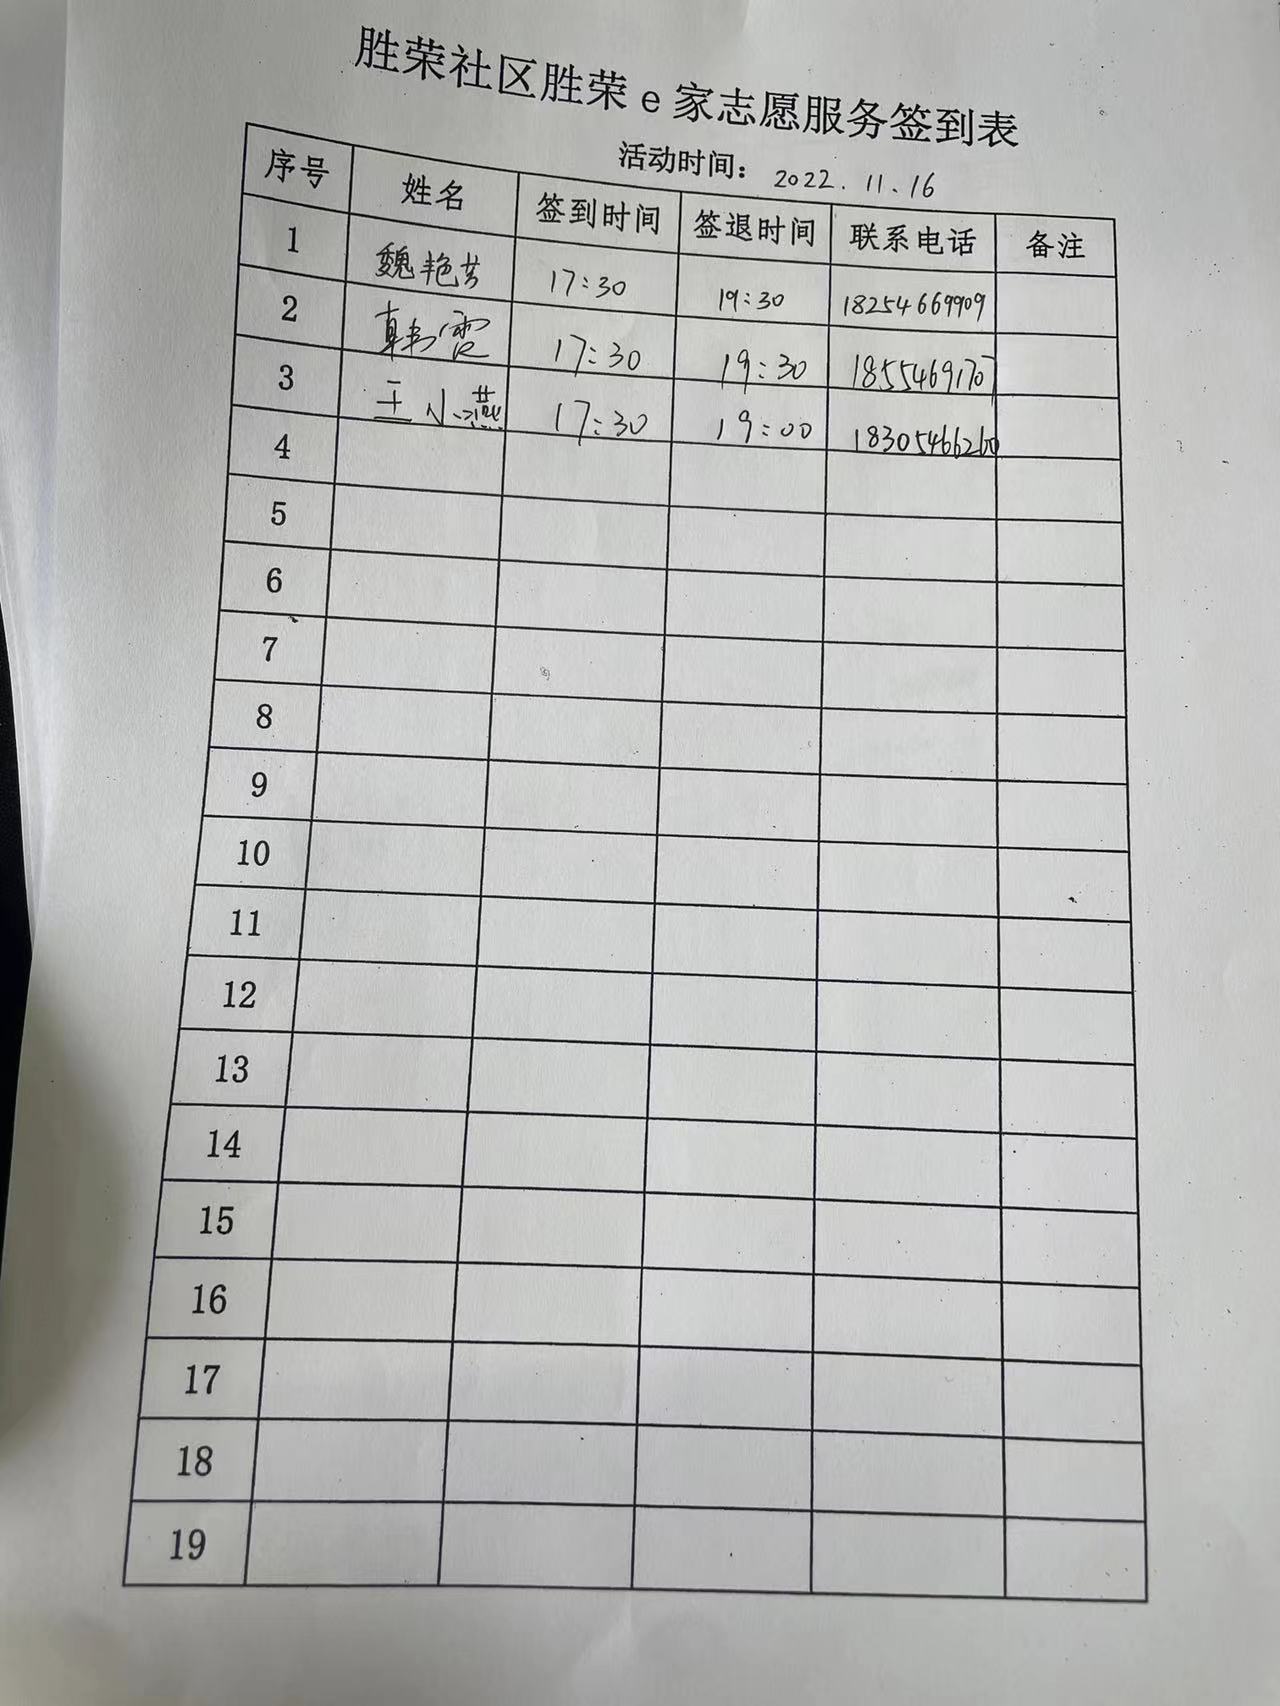 胜荣社区胜荣e家志愿服务签到表
活动时间：2022.11.16
序号 姓名 签到时间 签退时间 联系电话 备注
1 魏艳芳 17:30 19:30 18254669909
2 韩霞 17:30 19:30 18554691707
3 王小燕 17:30 19:00 18305466260
4
5
6
7
8
9
10
11
12
13
14
15
16
17
18
19